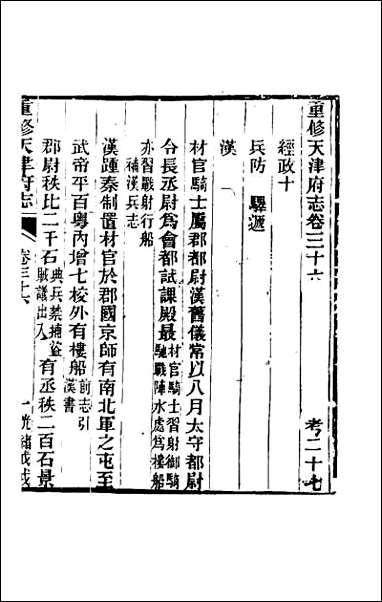 重修天津府志卷三十六　考二十七
經政十
兵防　驛遞
漢
材官騎士屬郡都尉漢舊儀常以八月太守都尉
令長丞尉爲會都試課殿最材官騎士習射御騎馳戰陣水處爲樓船
亦習戰射行船補漢兵志
漢踵秦制置材官於郡國京師有南北軍之屯至
武帝平百粤內增七校外有樓船前志引漢書
郡尉秩比二千石典兵禁捕盜賊議出入有丞秩二百石景
重修天津府志　卷三十六　一　光緒戊戌